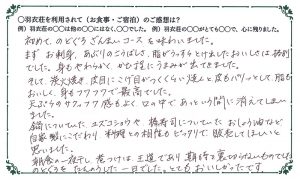 ○羽衣荘を利用されて（お食事・ご宿泊）のご感想は？
例）羽衣荘の○○は他の○○にはなく、○○でした。 例）羽衣荘の○○がとても○○で、心に残りました。
初めて、のどぐろざんまいコースを味わいました。
まず お刺身、あぶりのこうばしさ、脂がうっすらとけ出たおいしさは格別
でした。身もやわらか、かむ程にうまみが出てきました。
そして炭火焼き、皮目にこげ目がつくくらいに焼いと、皮もパリッとして、脂も
おいしく、身もフワフワで最高でした。
天ぷらのサクフワ感もよく、口の中であっという間に消えてしまい
ました。
鍋についていた、ユズコショウや、棒寿司についていたおしょう油など
自家製にこだわり、料理との相性もピッタリで販売してほしいと
思いました。
朝食の一夜干し、煮つけは、王道であり 期待を裏切らないものでした
のどぐろをたんのうした一日でした。とても、おいしかったです。